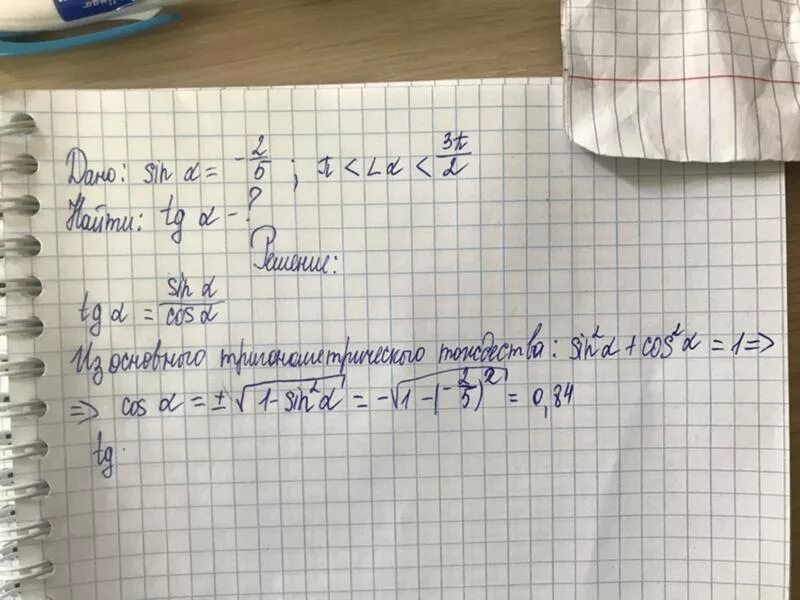 Дано: sin α = -2/5 ; π < ∠α < 3π/2
Найти: tg α - ?
Решение:
tg α = sin α / cos α
Из основного тригонометрического тождества: sin²α + cos²α = 1 =>
=> cos α = ±√(1-sin²α) = -√(1-(-2/5)²) = 0,84
tg